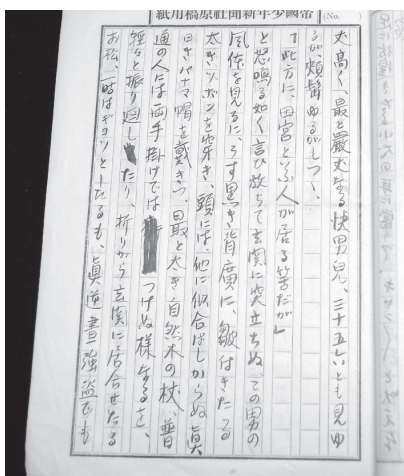 帝國少年新聞社原稿用紙
(No.
丈高く、最と嚴丈なる快男兒、三十五六とも見ゆ
るが頬髯ゆるがしつゝ、
「此方に、田宮と云ふ人が居る筈だが」
と怒鳴る如く言ひ放ちて玄関に突立ちぬこの男の
風体を見るに、うす黒き背廣に、皺付きたる
太きヅボンを穿き、頭には、他に似合はしからぬ眞
白きパナマ帽を戴きつ、最と太き自然木の杖、普
通の人には両手掛けではつけぬ様なるを、
軽々と振り廻したり、折りから玄関に居合せたる
お松、一時はギョッとしたるも、眞逆晝強盗でも